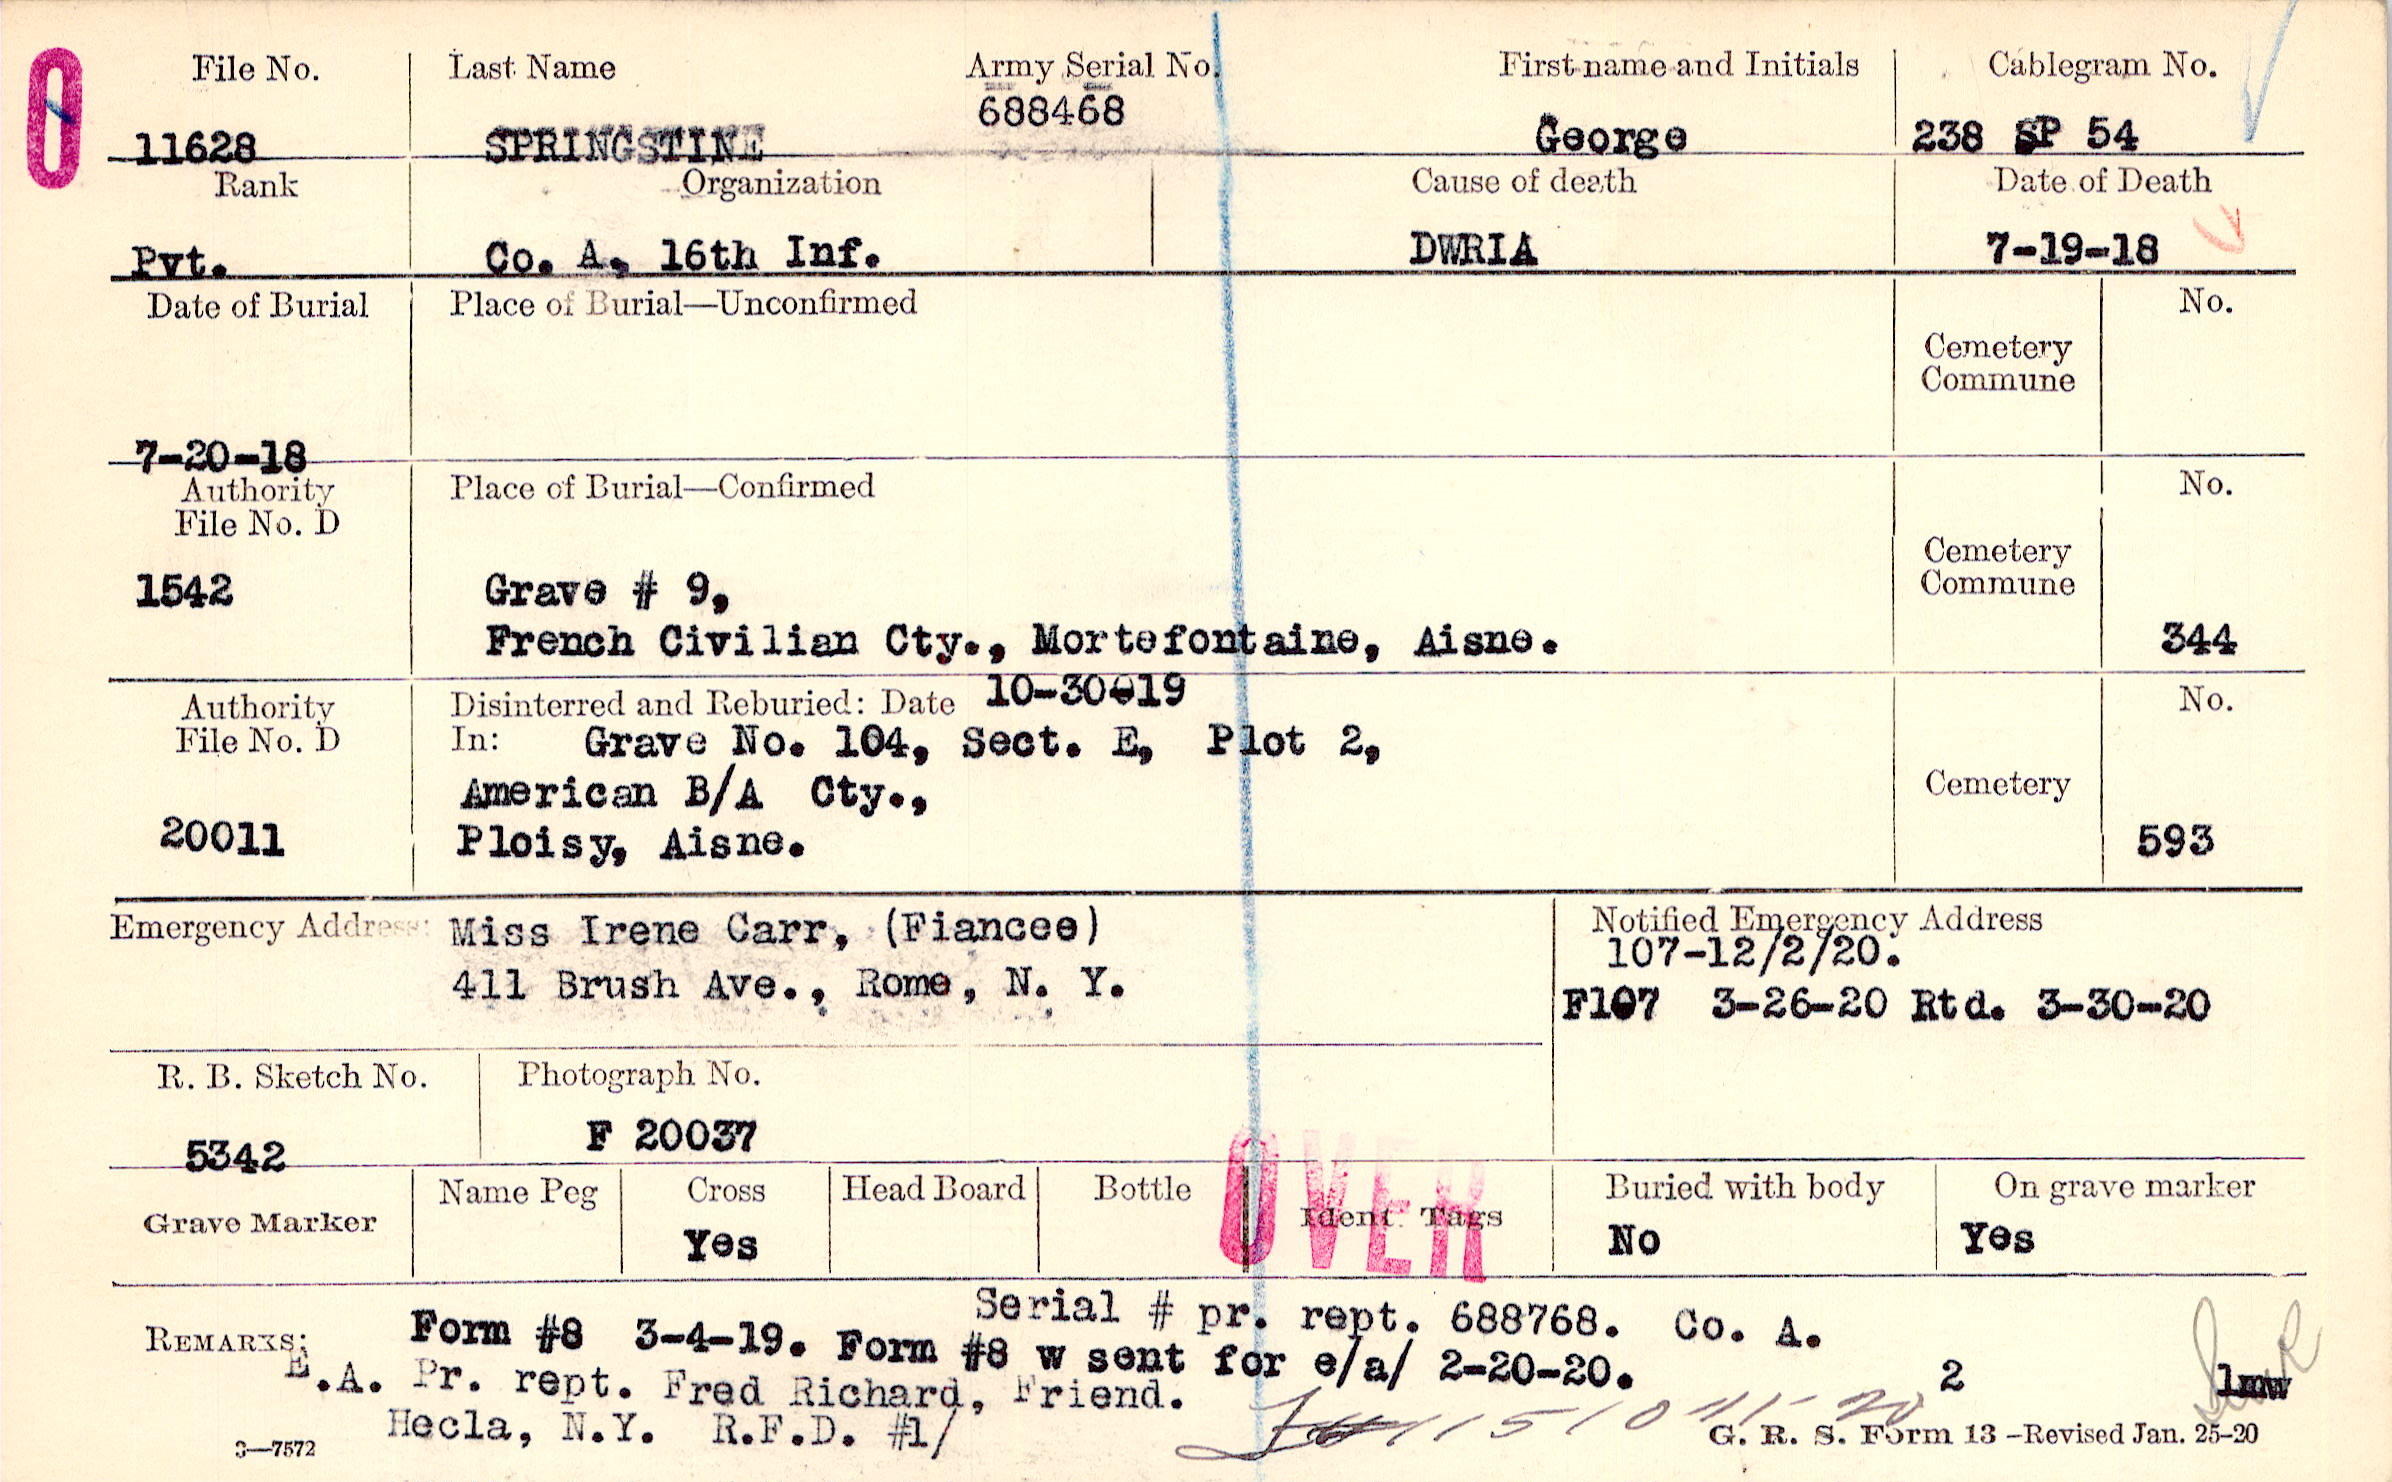 File No. Last Name Army Serial No. First name and Initials Cablegram No.
688468
11628 SPRINGSTINE George 238 SP 54
Rank Organization Cause of death Date of Death
Pvt. Co. A, 16th Inf. DWRIA 7-19-18
Date of Burial Place of Burial—Unconfirmed No.
Cemetery
Commune
7-20-18
Authority Place of Burial—Confirmed No.
File No. D
Cemetery
Commune
1542 Grave # 9,
French Civilian Cty., Mortefontaine, Aisne. 344
Authority Disinterred and Reburied: Date 10-30-19 No.
File No. D In: Grave No. 104, Sect. E, Plot 2,
American B/A Cty., Cemetery
20011 Ploisy, Aisne. 593
Emergency Address: Miss Irene Carr, (Fiancee) Notified Emergency Address
107-12/2/20.
411 Brush Ave., Rome, N. Y. F107 3-26-20 Rtd. 3-30-20
R. B. Sketch No. Photograph No.
5342 F 20037
OVER
Name Peg Cross Head Board Bottle Buried with body On grave marker
Grave Marker Ident. Tags
Yes No Yes
Serial # pr. rept. 688768. Co. A.
REMARKS: Form #8 3-4-19. Form #8 w sent for e/a/ 2-20-20.
E.A. Pr. rept. Fred Richard, Friend. 2 lmw
Hecla, N.Y. R.F.D. #1/
3—7572 G. R. S. Form 13 –Revised Jan. 25-20